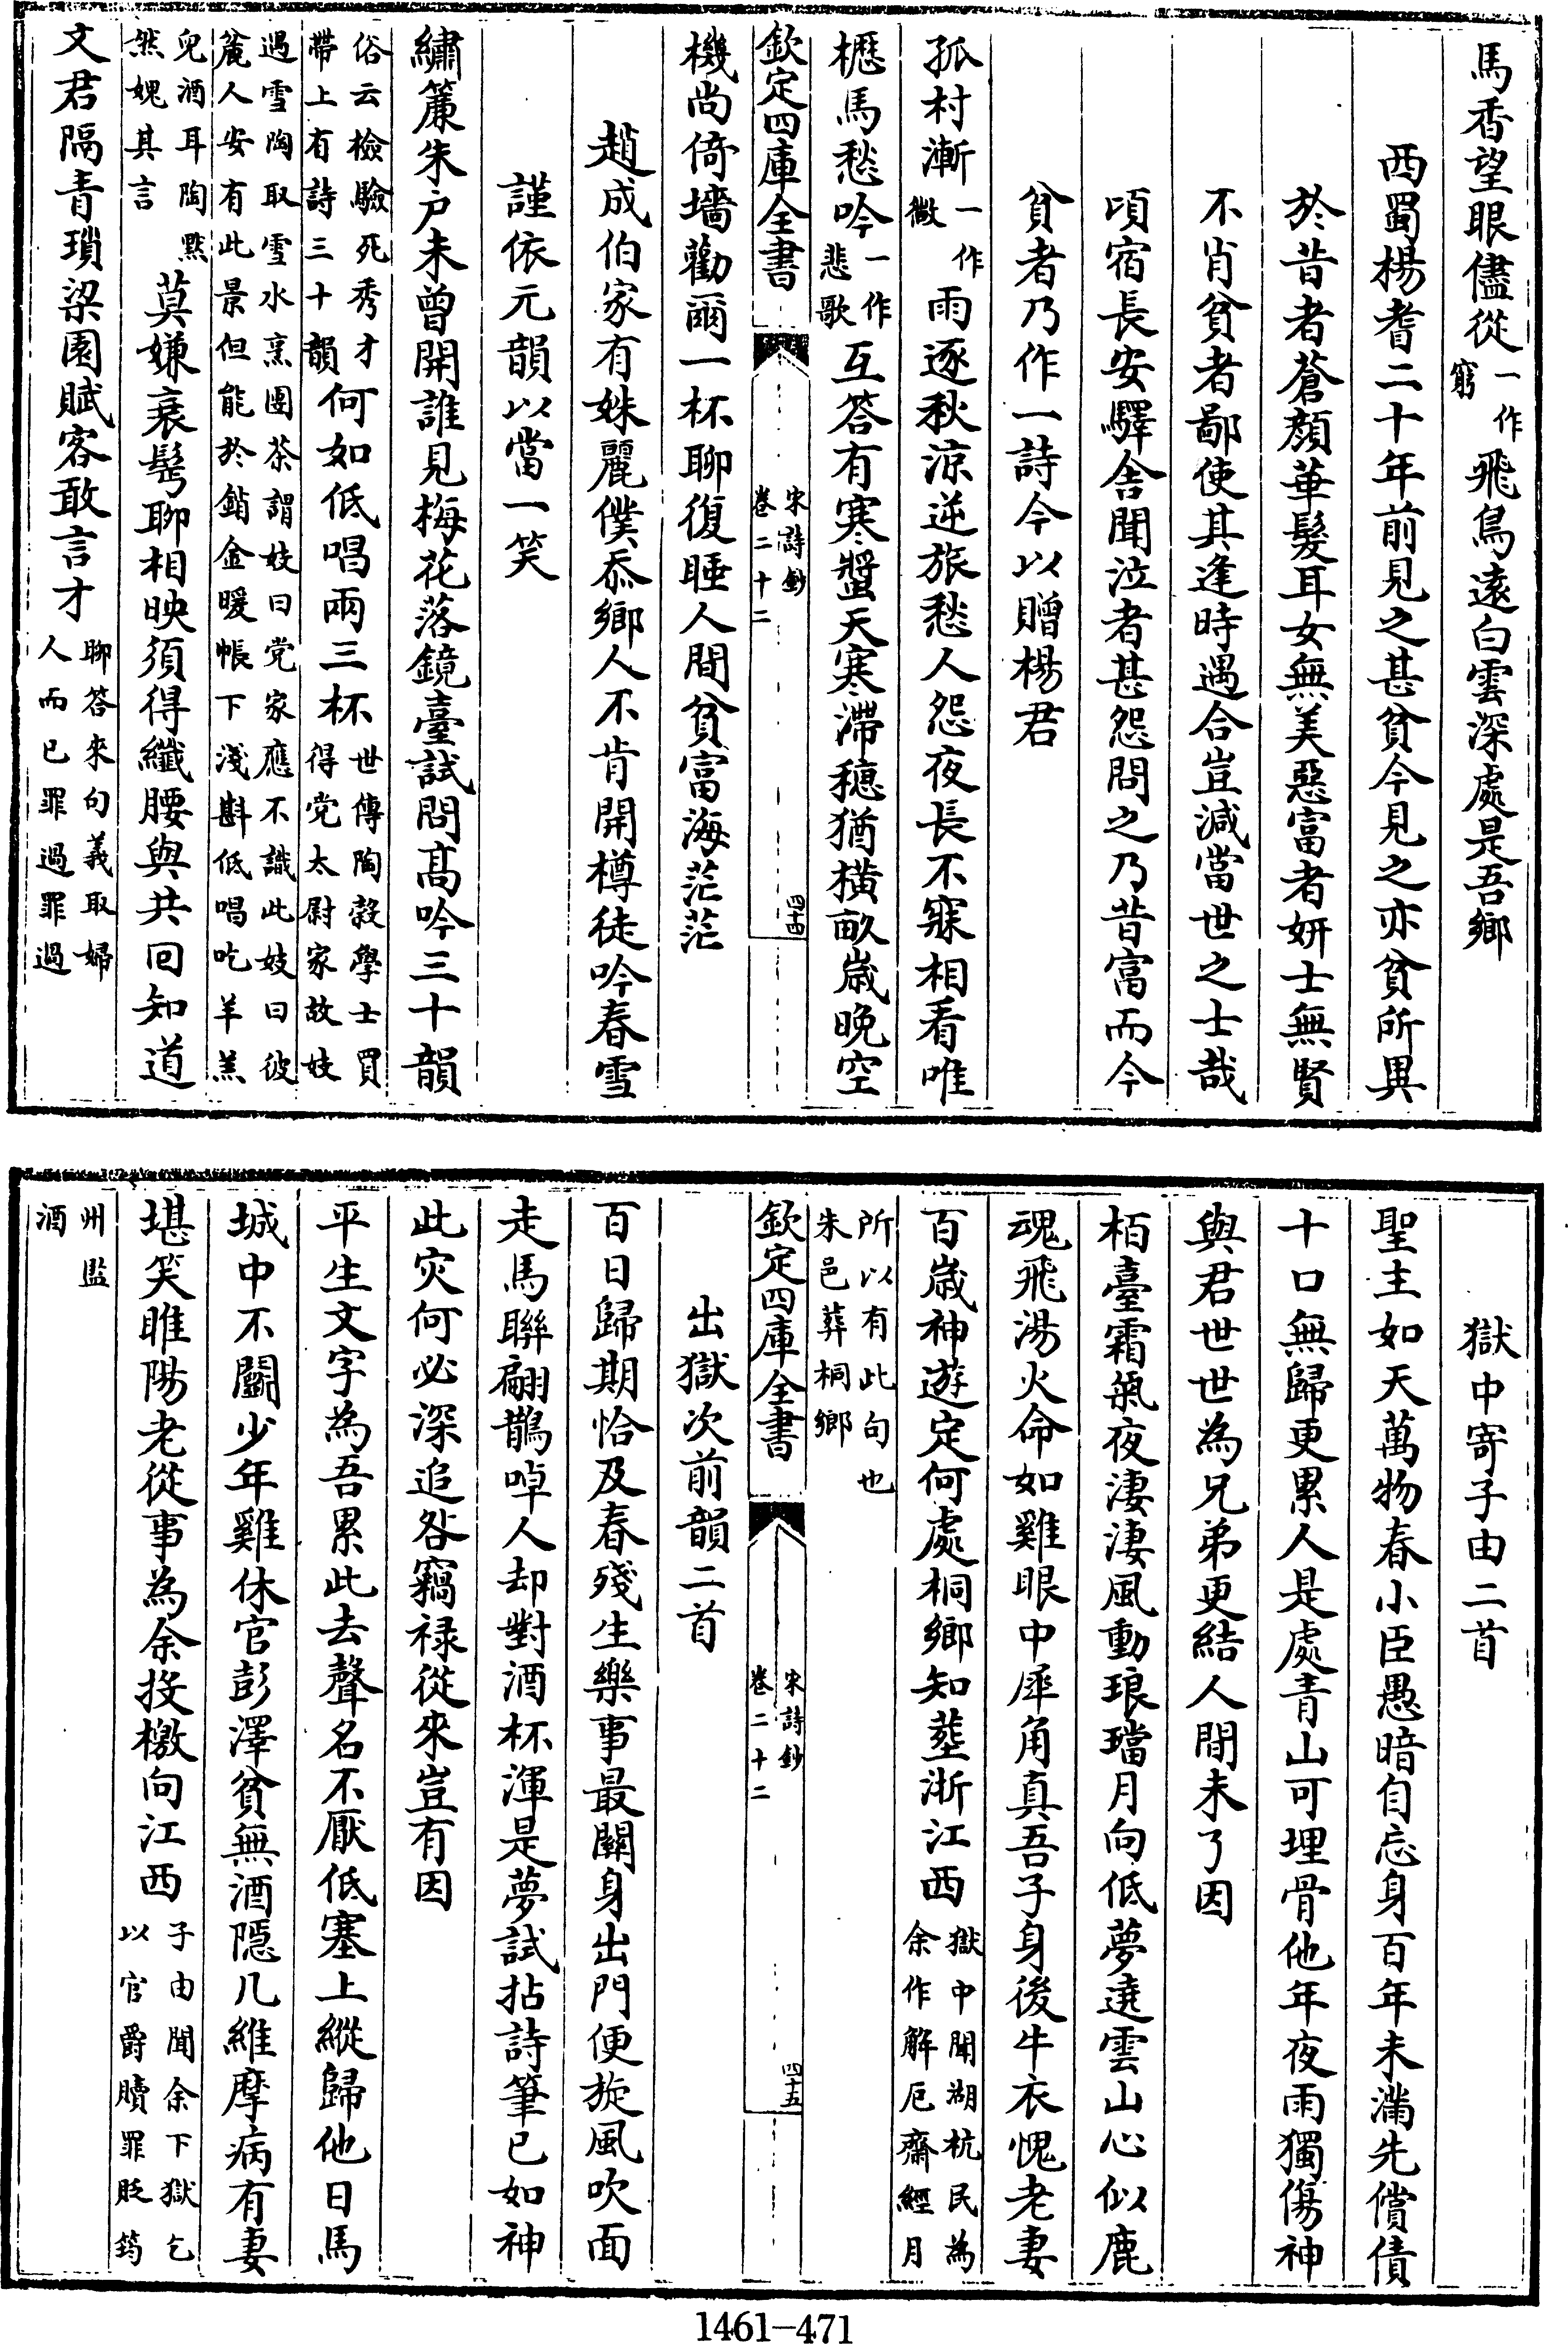 馬香望眼儘從一作窮飛鳥遠白雲深處是吾鄉
西蜀楊耆二十年前見之甚貧今見之亦貧所異
於昔者蒼顏華髮耳女無美惡富者妍士無賢
不肖貧者鄙使其逢時遇合豈減當世之士哉
頃宿長安驛舍聞泣者甚怨問之乃昔富而今
貧者乃作一詩今以贈楊君
孤村漸一作微雨逐秋涼逆旅愁人怨夜長不寐相看唯
櫪馬愁吟一作悲歌互答有寒螿天寒滯穗猶橫畝嵗晚空
欽定四庫全書
宋詩鈔
卷二十二
四十四
機尚倚墻勸爾一杯聊復睡人間貧富海茫茫
趙成伯家有姝麗僕忝鄉人不肯開樽徒吟春雪
謹依元韻以當一笑
繡簾朱戶未曾開誰見梅花落鏡臺試問髙吟三十韻
俗云檢驗死秀才
帶上有詩三十韻
何如低唱兩三杯
世傳陶穀學士買
得党太尉家故妓
過雪陶取雪水烹團茶謂妓曰党家應不識此妓曰彼
麄人安有此景但能於銷金暖帳下淺斟低唱吃羊羔
兒酒耳陶黙
然媿其言
莫嫌衰鬂聊相映須得纖腰與共回知道
文君隔青瑣梁園賦客敢言才
聊答來句義取婦
人而已罪過罪過
獄中寄子由二首
聖主如天萬物春小臣愚暗自忘身百年未滿先償債
十口無歸更累人是處青山可埋骨他年夜雨獨傷神
與君世世為兄弟更結人間未了因
栢臺霜氣夜淒淒風動琅璫月向低夢遶雲山心似鹿
魂飛湯火命如雞眼中犀角真吾子身後牛衣愧老妻
百嵗神遊定何處桐鄉知塟浙江西
獄中聞湖杭民為
余作解厄齋經月
所以有此句也
朱邑葬桐鄉
欽定四庫全書
宋詩鈔
卷二十二
四十五
出獄次前韻二首
百日歸期恰及春殘生樂事最關身出門便旋風吹面
走馬聯翩鵲啅人却對酒杯渾是夢試拈詩筆已如神
此灾何必深追咎竊禄從來豈有因
平生文字為吾累此去聲名不厭低塞上縱歸他日馬
城中不鬬少年雞休官彭澤貧無酒隱几維摩病有妻
堪笑睢陽老從事為余投檄向江西
子由聞余下獄乞
以官爵贖罪貶筠
州監
酒
1461-471